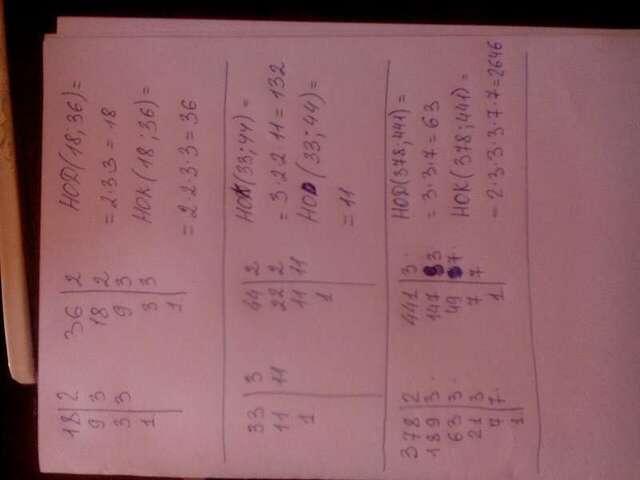 18|2 36|2 НОД(18;36)=
9|3 18|2 =2·3·3=18
3|3 9|3 НОК(18;36)=
1| 3|3 =2·2·3·3=36
1|
33|3 44|2 НОК(33;44)=
11|11 22|2 =3·2·2·11=132
1| 11|11 НОД(33;44)=
1| =11
378|2 441|3 НОД(378;441)=
189|3 147|3 =3·3·7=63
63|3 49|7 НОК(378;441)=
21|3 7|7 =2·3·3·3·7·7=2646
7|7 1|
1|